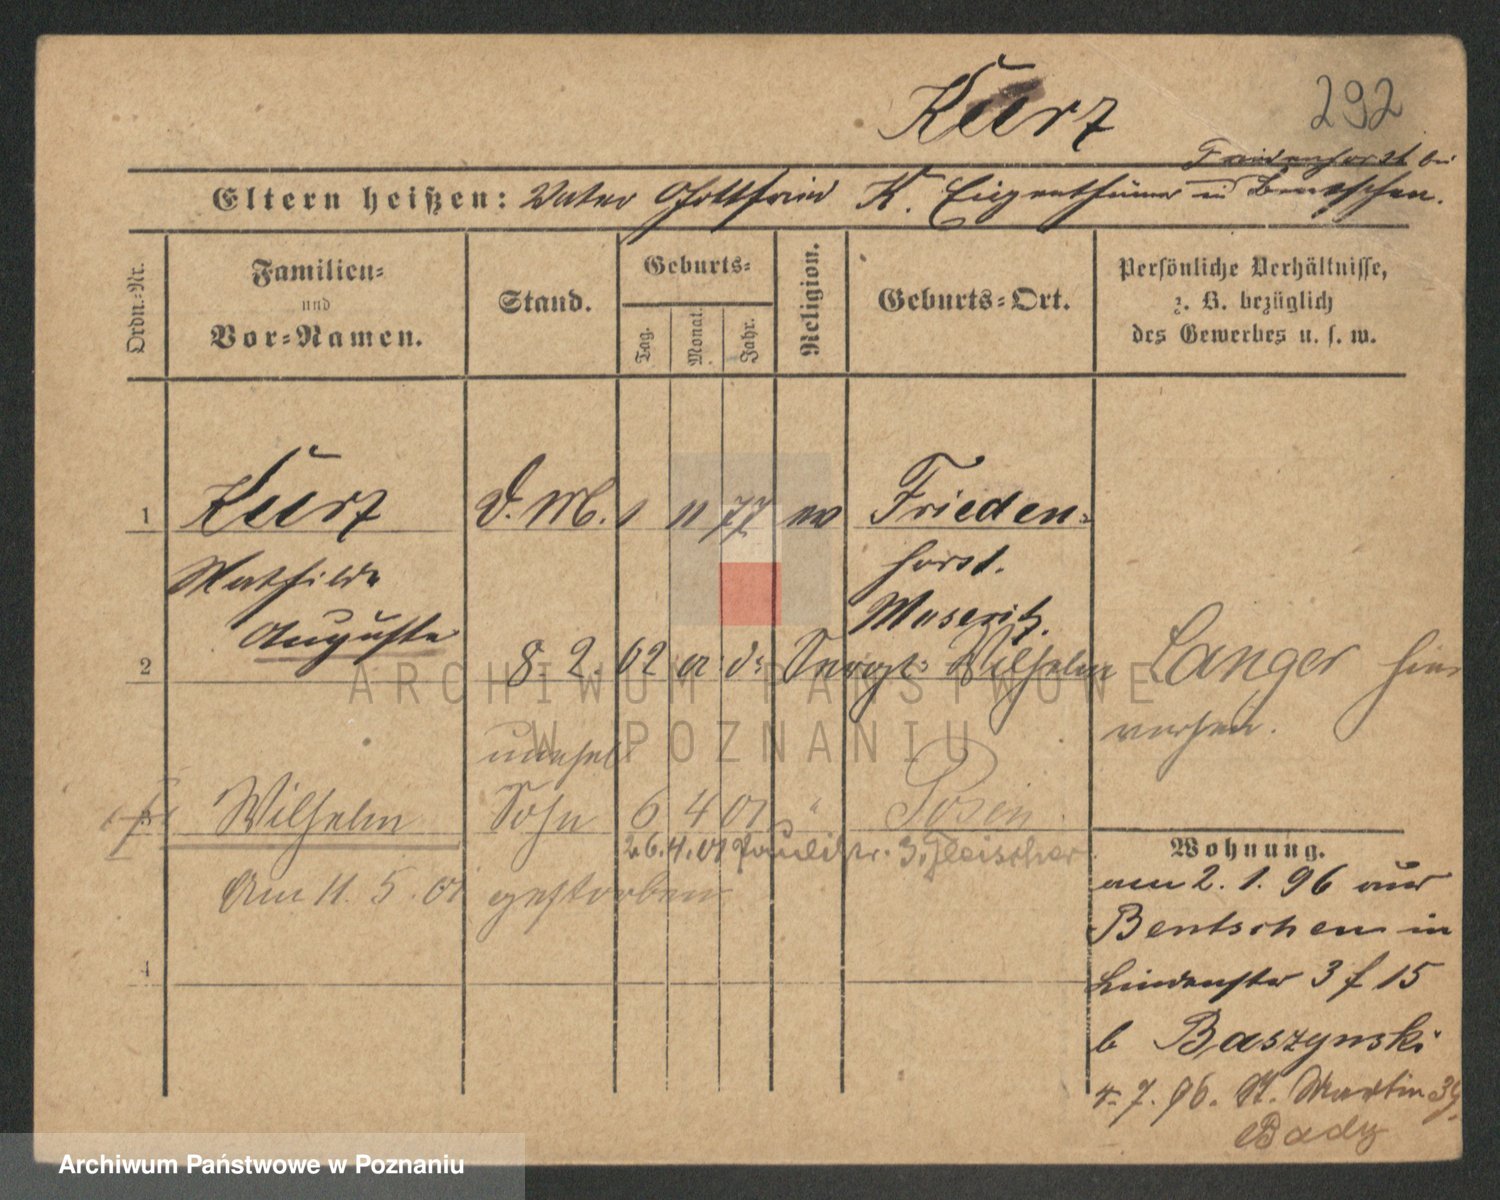 Kurz
292
Friedenhorst bei
Eltern heißen: Vater Gottfried K. Eigenthümer in Bentschen.
Ordn.-Nr.
Familien-
und
Vor-Namen.
Stand.
Geburts-
Tag.
Monat.
Jahr.
Religion.
Geburts-Ort.
Persönliche Verhältnisse,
z. B. bezüglich
des Gewerbes u. s. w.
1 Kurz D. M. 1 11 77 ev Frieden-
horst.
Mathilde
Meseritz.
Auguste
2 8. 2. 02 a. d. Sergt. Wilhelm Langer hier
verh.
unehel
3 Wilhelm Sohn 6 4 01 " Posen
26.4.01 Paulistr. 3. Fleischer
Am 11. 5. 01 gestorben
4
Wohnung.
am 2. 1. 96 aus
Bentschen in
Lindenstr 3 f 15
b Baszynski
4. 7. 96. St. Martin 39
Bady
ARCHIWUM PAŃSTWOWE
W POZNANIU
Archiwum Państwowe w Poznaniu